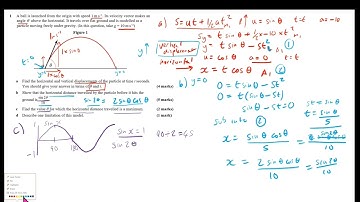 1 A ball is launched from the origin with speed 1 m s⁻¹. Its velocity vector makes an
angle θ above the horizontal. It travels over flat ground and is modelled as a
particle moving freely under gravity. (In this question, take g = 10 m s⁻²)
Figure 1
a Find the horizontal and vertical displacement of the particle at time t seconds.
You should give your answers in terms of θ and t.
(4 marks)
b Show that the horizontal distance travelled by the particle before it hits the
ground is sin2θ/10
(3 marks)
2sinθcosθ
c Find the value θ for which the horizontal distance is a maximum.
(2 marks)
d Describe one limitation of this model.
(1 mark)
a) s = ut + ½at²
u = sinθ
t = t
a = -10
vertical displacement
horizontal
y = t sinθ - 5t²
x = t cosθ
b) y = 0
0 = t sinθ - 5t²
0 = t(sinθ - 5t)
5t = sinθ
t = sinθ/5
sub into
x = sinθ cosθ/5
x = 2 sinθ cosθ/10 = sin2θ/10
c)
sin x = 1
sin 2θ
90 ÷ 2 = 45
1
-1
90
180